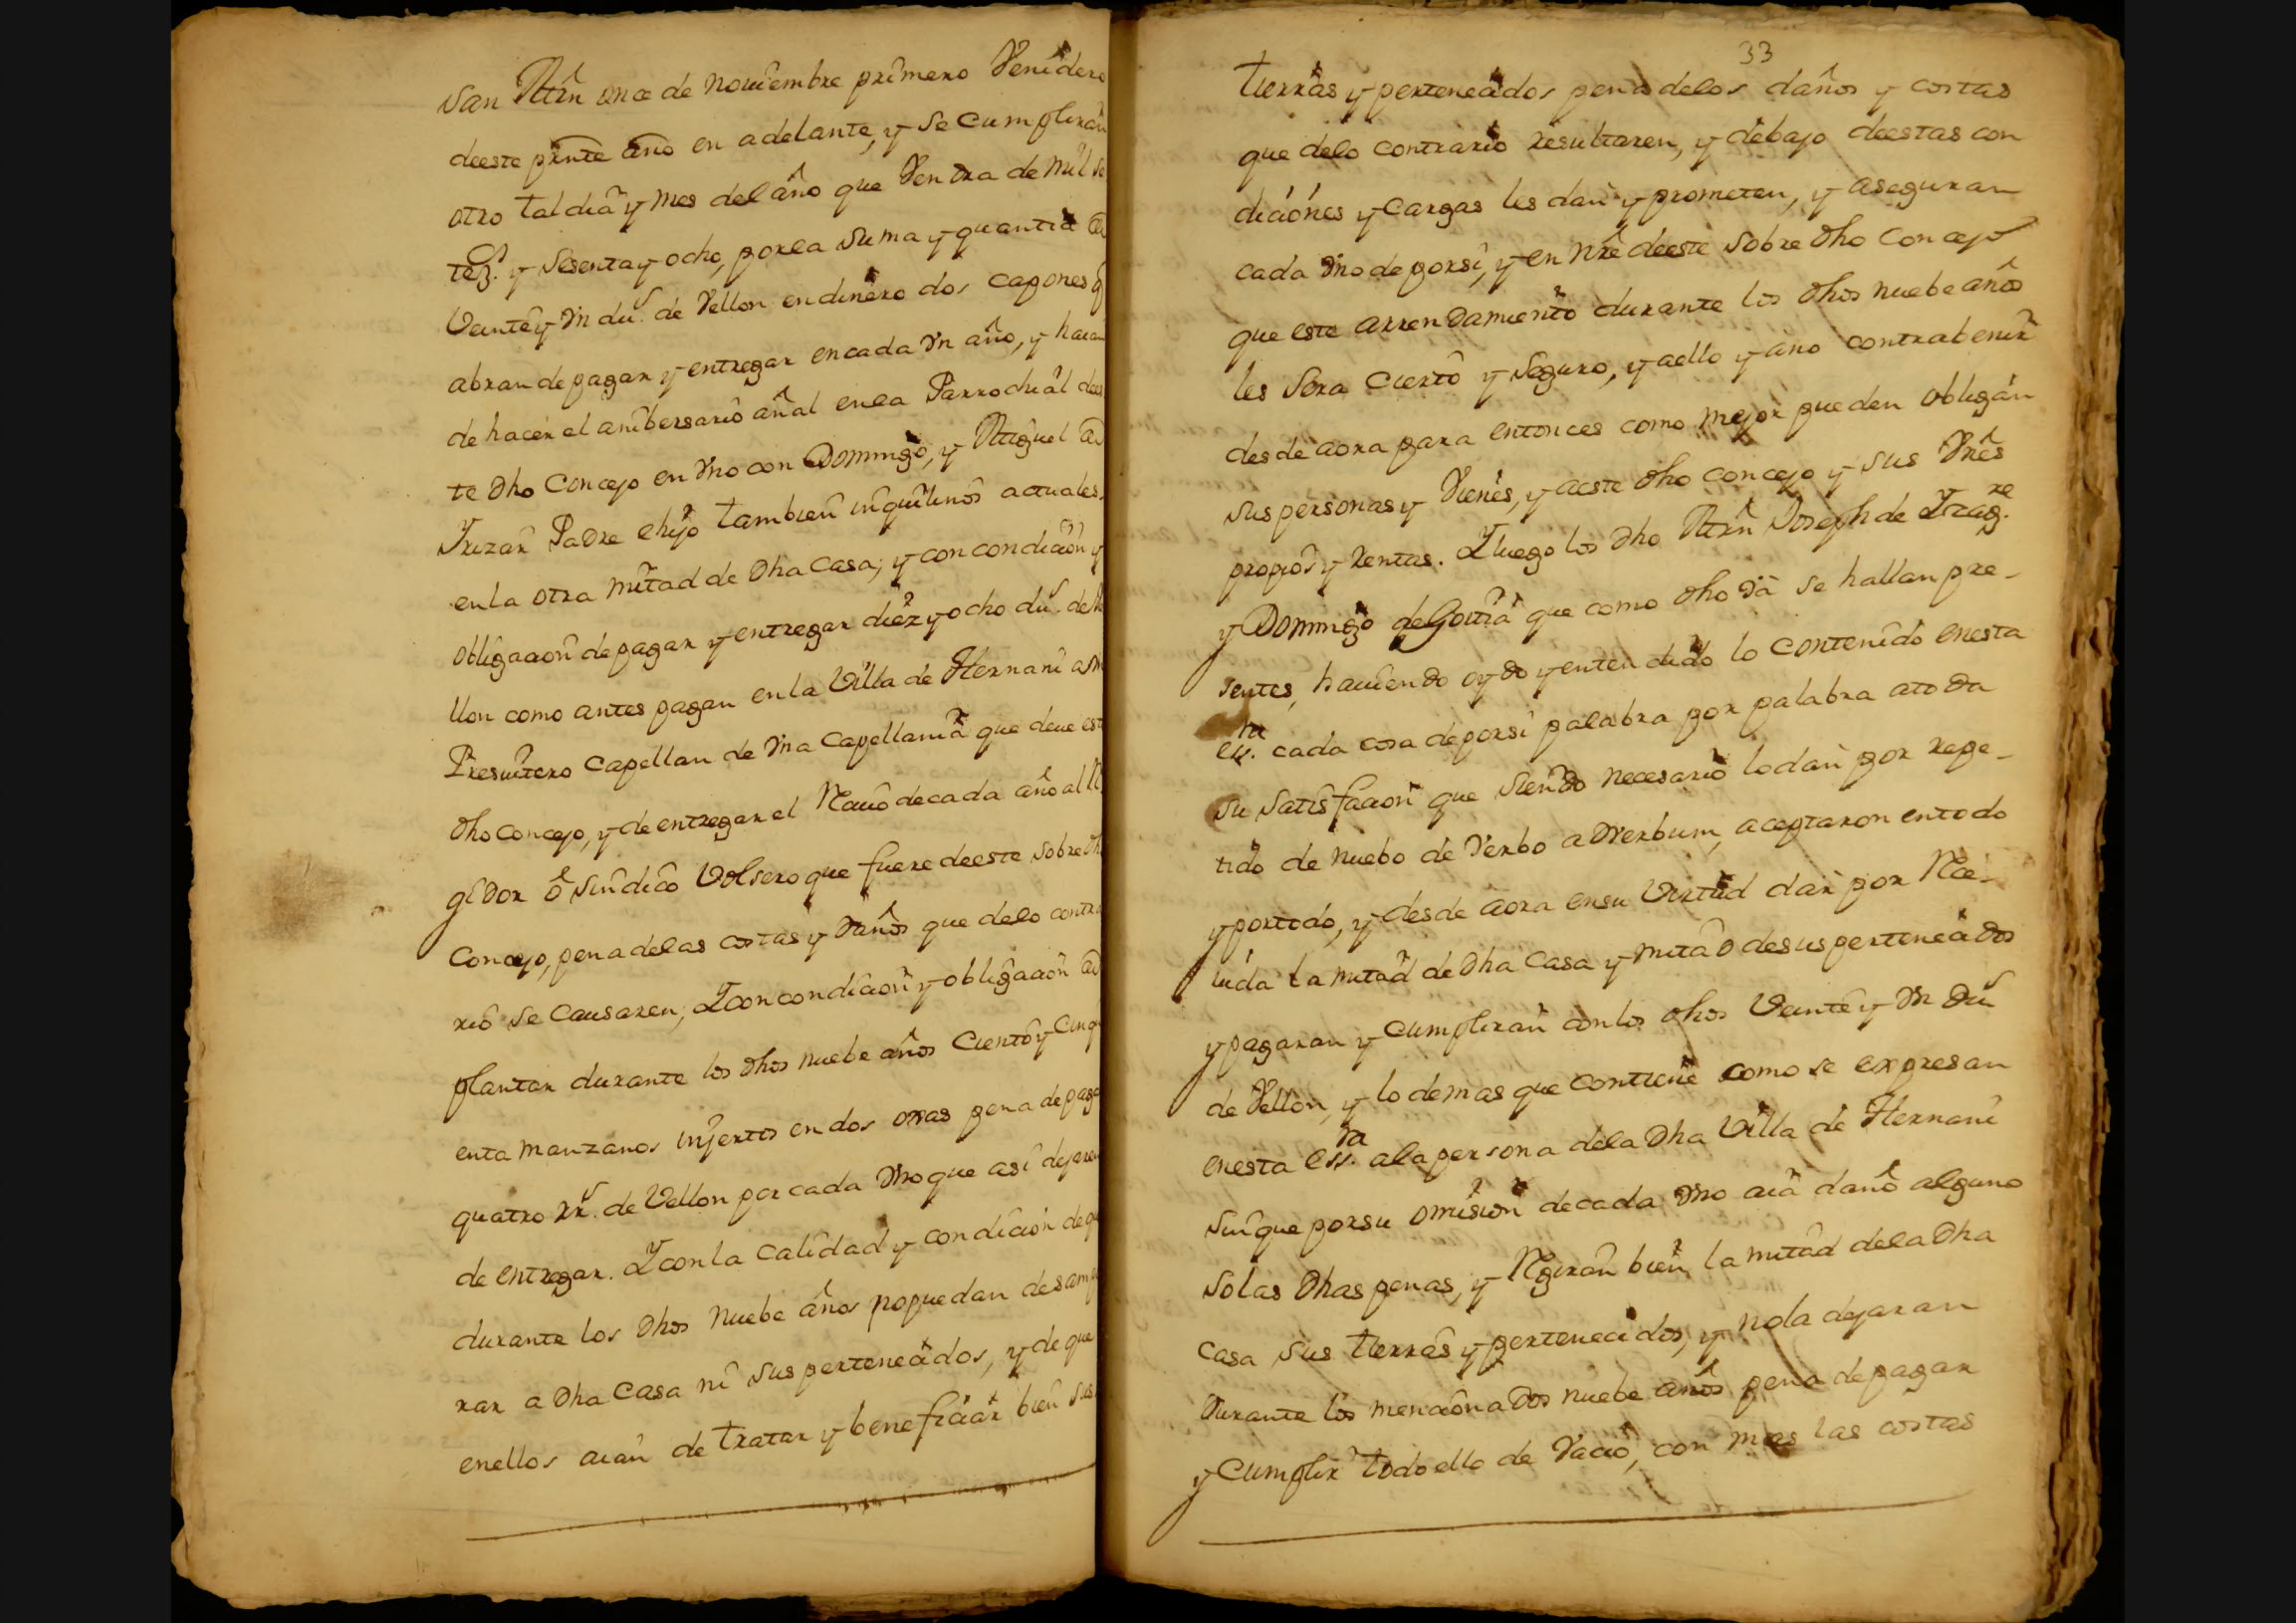 San Mrn once de Noviembre primero Venidero
deeste prnte año en adelante, y se cumpliran
otro tal dia y mes del año que Vendra de mil se
tez.s y Sesenta y ocho, por la suma y quantia de
Veinte y Un du.s de Vellon en dinero dos capones q
abran de pagar y entregar en cada Vn año, y haian
de hacer el anibersario añal en la Parrochial dees
te dho Concejo en Vno con Domingo, y Miguel de
Irizar Padre e hijo tambien inquilinos actuales
en la otra mitad de dha Casa; y con condicion y
obligacion de pagar y entregar diez y ocho du.s de Ve
llon como antes pagan en la Villa de Hernani a Dn
Presvitero Capellan de Vna Capellania que deve este
dho Concejo, y de entregar el Recivo de cada año al Re
gidor ô Sindico Volsero que fuere deeste sobre dho
Concejo, pena delas costas y daños que delo contra
rio se Causaren; Y con condicion y obligacion de
plantar durante los dhos nuebe años Ciento y Cinqu
enta manzanos injertos en dos onas pena de pagar
quatro rr.s de Vellon por cada Vno que asi dejaren
de entregar. Y con la Calidad y condicion de que
durante los dhos Nuebe años no puedan desampa
rar a dha Casa ni sus pertenecidos, y de que
enellos aian de tratar y beneficiar bien sus
33
tierras y pertenecidos pena delos daños y costas
que delo contrario resultaren, y debajo deestas con
diciones y Cargas les dan y prometen, y aseguran
cada Vno de porsi, y en Nre deeste sobre dho Concejo
que este arrendamiento durante los dhos nuebe años
les Sera Cierto y Seguro, y aello y ano contrabenir
desde aora para entonces como mejor pueden obligan
sus personas y Vienes, y aeste dho Concejo y sus Vnes
propios y Rentas. Y luego los dho Mrn Joseph de Yzag.re
y Domingo de Goitia que como dho Va se hallan pre-
sentes, haviendo oydo y entendido lo contenido enesta
ess.ra cada cosa deporsi palabra por palabra atoda
su satisfacion que siendo necesario lo dan por repe-
tido de nuebo de Verbo adverbum, aceptaron entodo
y portodo, y desde aora ensu Virtud dan por Reci-
vida la mitad de dha Casa y mitad desus pertenecidos
y pagaran y Cumpliran con los dhos Veinte y Vn du.s
de Vellon, y lo demas que contiene como se expresan
enesta ess.ra ala persona dela dha Villa de Hernani
sin que por su omision decada Vno aia daño alguno
so las dhas penas, y Regiran bien la mitad dela dha
Casa sus tierras y pertenecidos, y no la dejaran
durante los mencionados nuebe años pena de pagar
y Cumplir todo ello de Vacio, con mas las costas